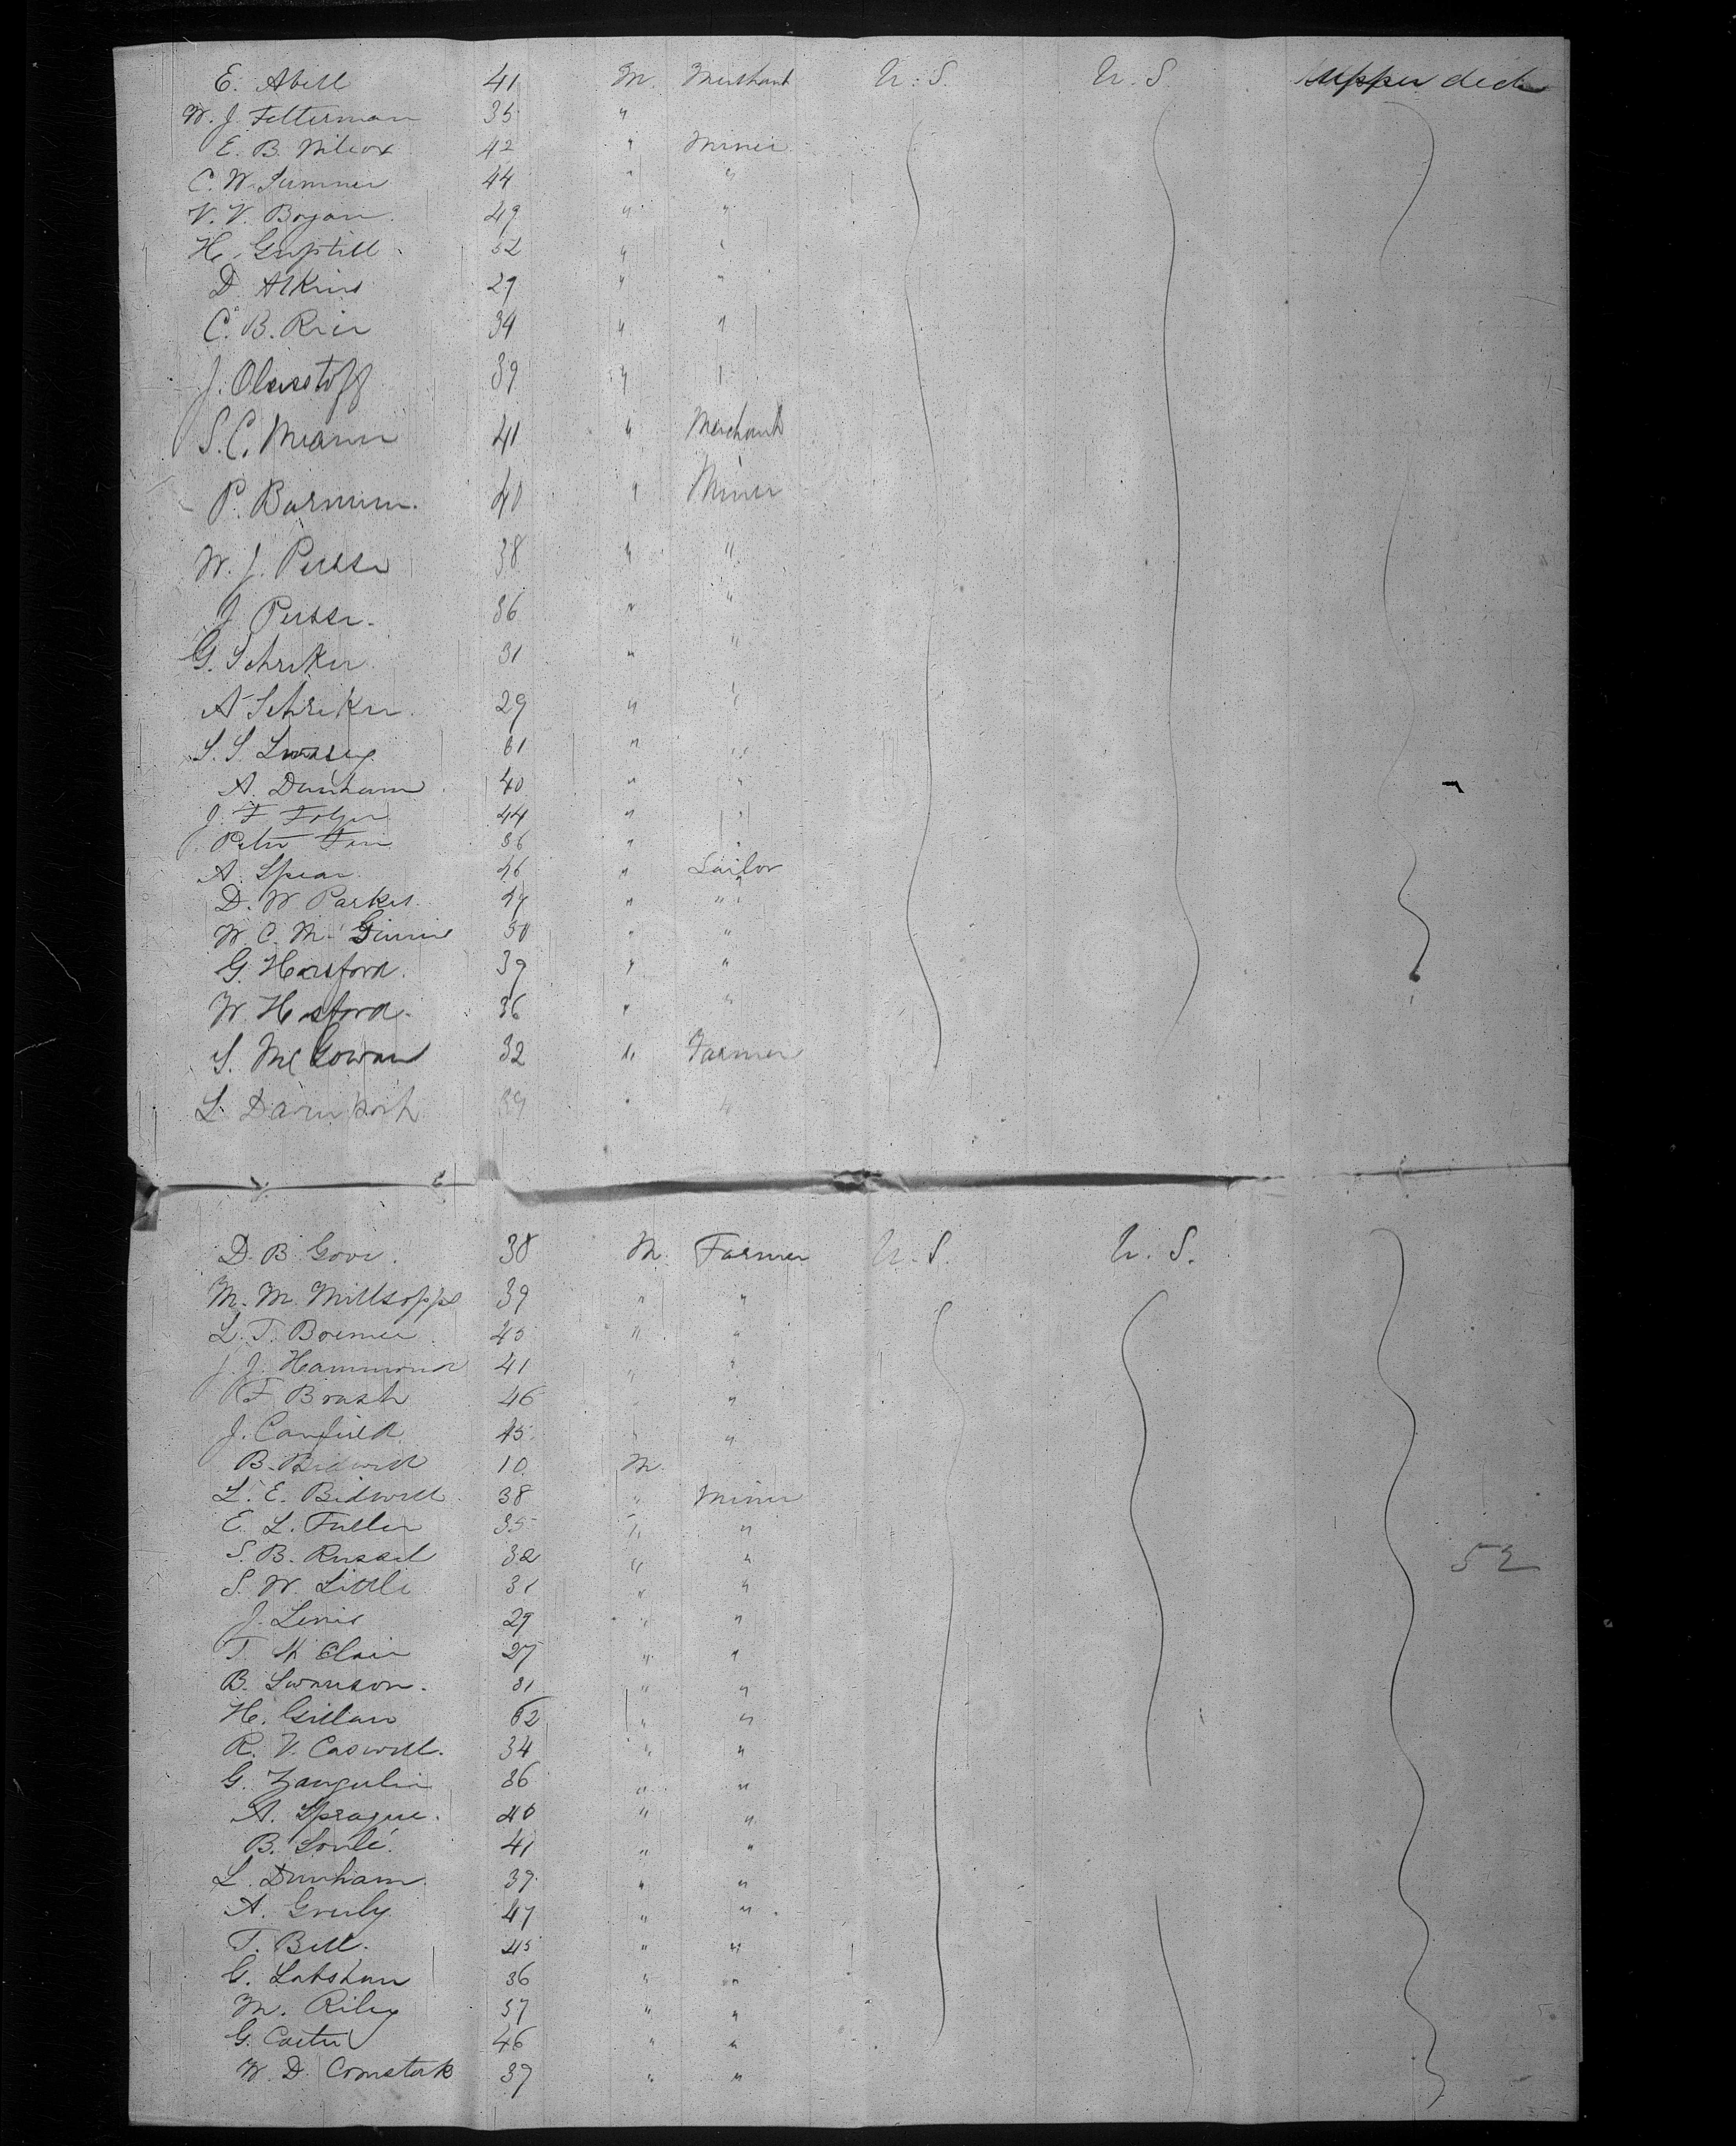 E. Abell 41 M. Merchant U.S. U.S. Upper deck
W. J. Fetterman 35 "
E. B. Wilcox 42 " Miner
C. W. Sumner 44 " "
V. V. Bogan. 49 " "
H. Guptill. 52 " "
D. Atkins 29 " "
C. B. Rice 34 " "
J. 39 " "
S. C. Mann 41 " Merchant
P. Barnum. 40 " Miner
W. J. 38 " "
J. 36 " "
G. Schreker 31 " "
A Schreker. 29 " "
S. S. " "
A. Dunham 40 " "
J. F. Folger 44 " "
Peter 36 " "
A. Spear. 46 " Sailor
D. W. Parker " "
W. C. McGinnis 50 " "
G. Hosford. 39 " "
W. Hosford. 36 " "
S. McGowan 32 " Farmer
L. Davenport 39 " "
D. B. Gove. 38 M. Farmer U.S. U.S.
M. M. Millsopps 39 " "
L. T. 45 " "
J. J. Hammond 41 " "
F. Brash 46 " "
J. Canfield 45 " "
B. Bidwell 10 M.
L. E. Bidwell 38 " Miner
E. L. Fuller 35 " "
S. B. Russell 32 " " 52
S. W. Little 31 " "
J. Lewis 29 " "
T. St Clair 27 " "
B. Swanson. 31 " "
H. Gillan " "
R. V. Caswell. 34 " "
G. 36 " "
A. Sprague. 40 " "
B. Soulé. 41 " "
L. Dunham. 39 " "
A. Greely 47 " "
T. Bell. 45 " "
G. Latshaw 36 " "
M. Riley 37 " "
G. Carter 46 " "
W. D. Comstock 39 " "